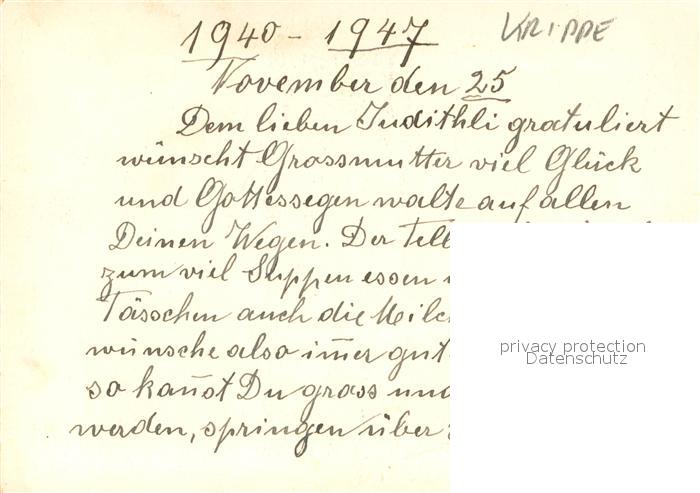 1940 - 1947 KRIPPE
November den 25
Dem lieben Judithli gratuliert
wünscht Grossmutter viel Glück
und Gottessegen walte auf allen
Deinen Wegen. Der Tell
zum viel Suppen essen
Tässchen auch die Milc
wünsche also im̄er gut
so kan̄st Du gross und
werden, springen über
privacy protection
Datenschutz